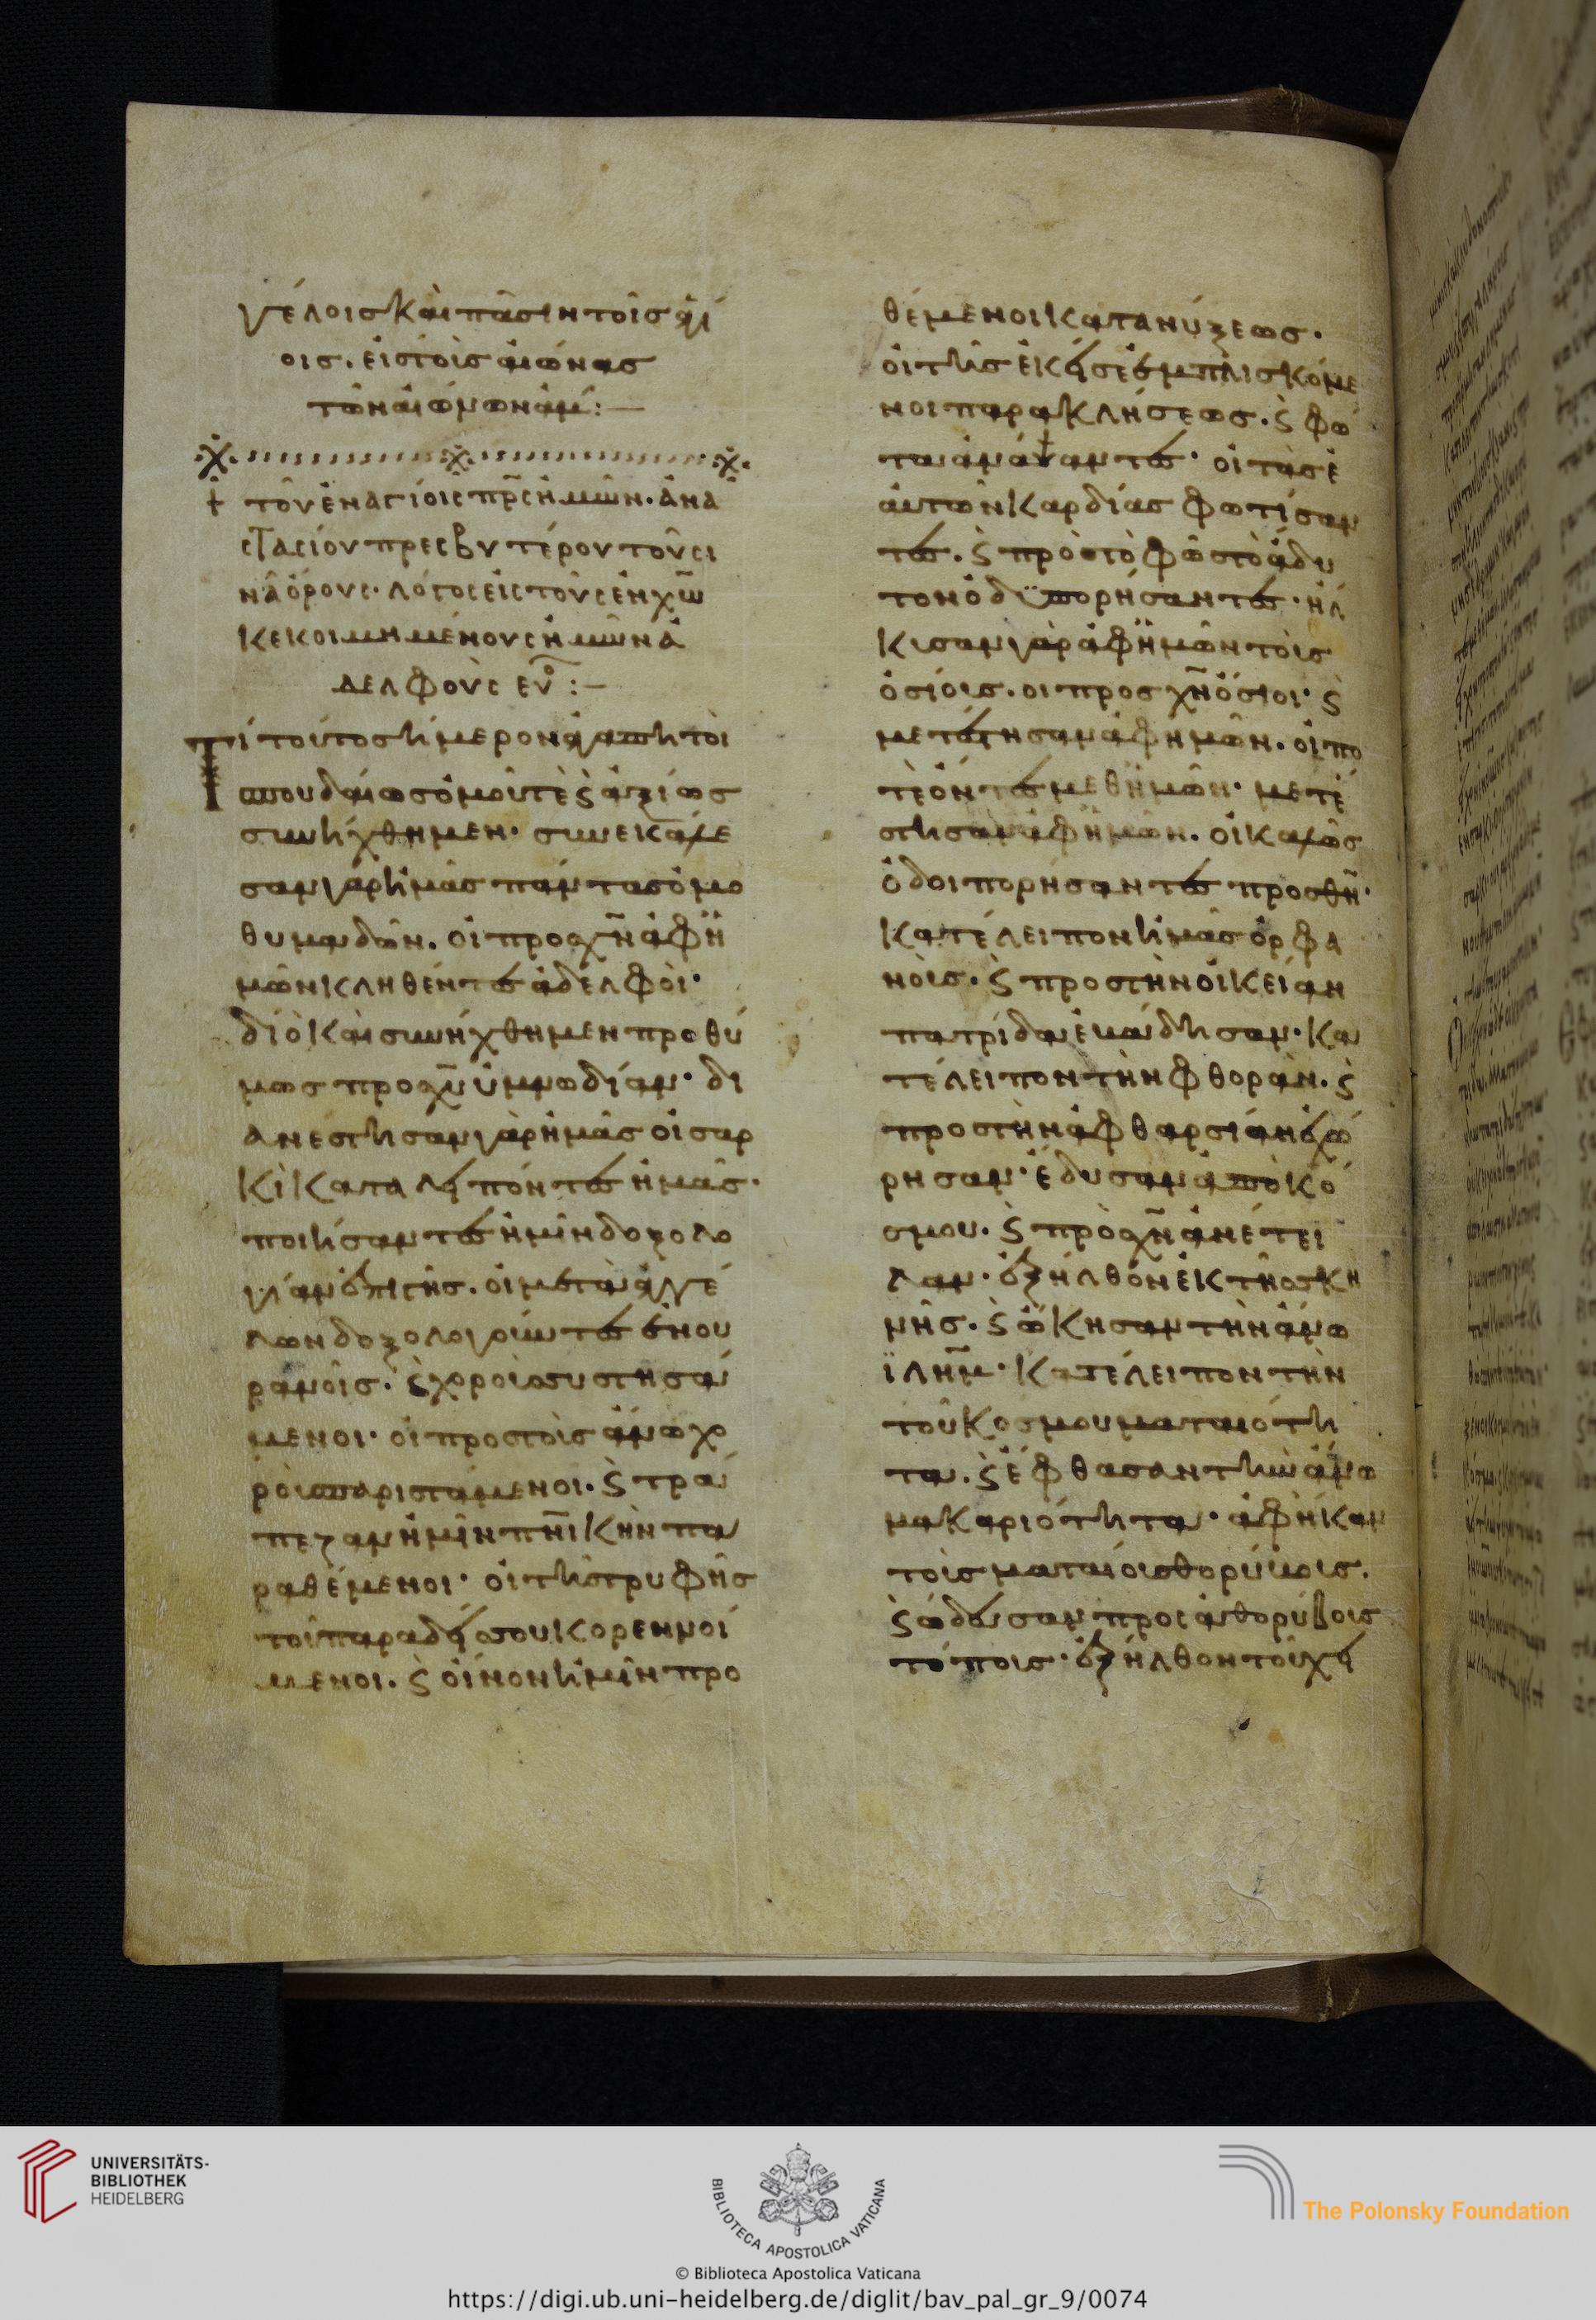 γέλοις καὶ πᾶσιν τοῖς ἁγί
οις. εἰς τοὺς αἰῶνας
τῶν αἰώνων ἀμ́:—
† τοῦ ἐν ἁγίοις πρ̅ς ἡμῶν. ἀνα
στασίου πρεσβυτέρου τοῦ σι
νᾶ ὄρους· λόγος εἰς τοὺς ἐν χω̅
κεκοιμημένους ἡμῶν ἀ
δελφοὺς εὐ :—
Τί τοῦτο σήμερον ἀγαπητοὶ
σπουδαίως ὁμοῦ τὲ ϛ ἀξίως
συνήχθημεν· συνεκαλε
σαν γὰρ ἡμᾶς πάντας ὁμο
θυμαδὸν. οἱ προς χν̅ ἀφ ἡ
μῶν κληθέντες ἀδελφοὶ·
διὸ καὶ συνήχθημεν προθύ
μως προς χν̅ ὑμνωδίαν· δι
ανέστησαν γὰρ ἡμᾶς οἱ σαρ
κὶ καταλειπόντες ἡμᾶς·
ποιήσαντες ἡμῖν δοξολο
γίαν ἐπὶ γῆς. οἱ μετὰ ἀγγέ
λων δοξολογοῦντες ἐν οὐ
ρανοῖς. ϛ χοροὺς συστησά
μενοι· οἱ προς τοῖς ἄνω χο
ροῖς παριστάμενοι. ϛ τρά
πεζαν ἡμῖν πν̅ικὴν πα
ραθέμενοι· οἱ τῆς τρυφῆς
τοῦ παραδείσου κορεννοί
μενοι. ϛ οἶνον ἡμῖν προ
θέμενοι κατανύξεως.
οἱ τῆς ἐκεῖσε ἐμπλισκόμε
νοι παρακλήσεως. ϛ φῶ
τα ἀνάψαντες· οἱ τὰς ἑ
αυτῶν καρδίας φωτίσαν
τες. ϛ πρὸς τὸ φῶς τὸ ἄδυ
τον ὁδϋπορήσαντες· ἠλ
κισαν γὰρ ἀφ ἡμῶν τοῖς
ὁσίοις. οι προς χν̅ ὅσιοι· ϛ
μετέστησαν ἀφ ἡμῶν. οἱ πο
τὲ ὄντες μεθ ἡμῶν· μετέ
στησαν ἀφ ἡμῶν. οἱ καλῶς
ὁδοιπορήσαντες προς θν̅·
κατέλειπον ἡμᾶς ὀρφα
νοὺς. ϛ προς τὴν οἰκείαν
πατρίδα ἐκάδησαν· κα
τέλειπον τὴν φθορὰν. ϛ
προς τὴν ἀφθαρσίαν ἐχώ
ρησαν· ἔδυσαν ἀπὸ κό
σμου. ϛ πρὸς χν̅ ἀνέτει
λαν· ἐξῆλθον ἐκ τῆς σκη
νῆς. ϛ ὤκησαν τὴν ἄνω
ϊλη̅μ· κατέλειπον τὴν
τοῦ κοσμου ματαιότη
τα. ϛ ἔφθασαν τὴν ἄνω
μακαριότητα· ἀφῆκαν
τοὺς ματαίους θορύβοις.
ϛ ὥδευσαν προς ἀθορύβοις
τόποις· ἐξῆλθον τοῦ χει
UNIVERSITÄTS-
BIBLIOTHEK
HEIDELBERG
BIBLIOTECA APOSTOLICA VATICANA
The Polonsky Foundation
© Biblioteca Apostolica Vaticana
https://digi.ub.uni-heidelberg.de/diglit/bav_pal_gr_9/0074